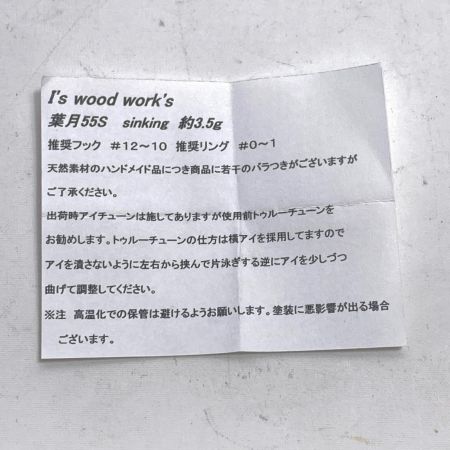 I's wood work's
葉月55S sinking 約3.5g
推奨フック #12～10 推奨リング #0～1
天然素材のハンドメイド品につき商品に若干のバラつきがございますが
ご了承ください。
出荷時アイチューンは施してありますが使用前トゥルーチューンを
お勧めします。トゥルーチューンの仕方は横アイを採用してますので
アイを潰さないように左右から挟んで片泳ぎする逆にアイを少しづつ
曲げて調整してください。
※注 高温化での保管は避けるようお願いします。塗装に悪影響が出る場合
ございます。